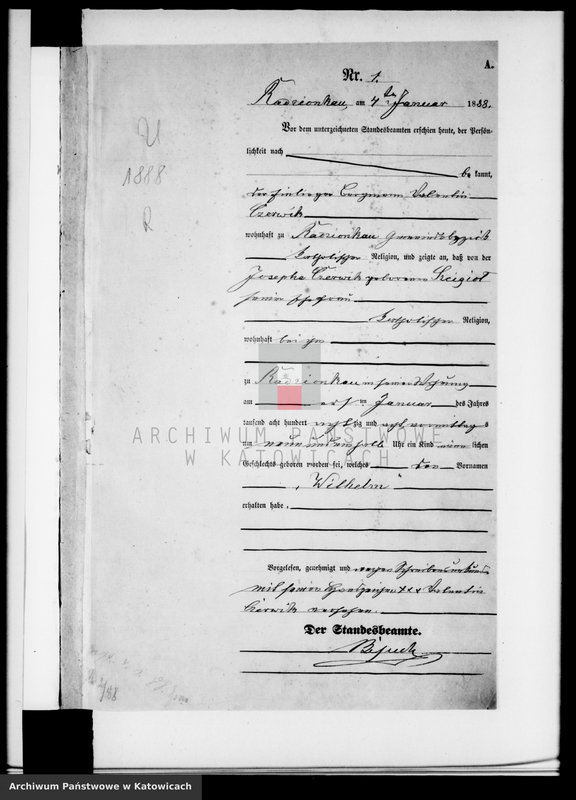 A.
Nr. 1.
Radzionkau, am 4ten Januar 1888.
Vor dem unterzeichneten Standesbeamten erschien heute, der Persön-
lichkeit nach
be kannt,
der Einlieger Bergmann Valentin
Czerwik
wohnhaft zu Radzionkau Gemeindebezirk
katholischer Religion, und zeigte an, daß von der
Josepha Czerwik geborenen
seiner Ehefrau
katholischer Religion,
wohnhaft bei ihm
zu Radzionkau in seiner Wohnung
am ersten Januar des Jahres
tausend acht hundert achtzig und acht vormittags
um neun und ein halb Uhr ein Kind männ lichen
Geschlechts geboren worden sei, welches den Vornamen
„Wilhelm“
erhalten habe.
Vorgelesen, genehmigt und wegen Schreibensunkunde
mit seinem Handzeichen +++ Valentin
Czerwik versehen.
Der Standesbeamte.
U
1888
R
ARCHIWUM PAŃSTWOWE
W KATOWICACH
Archiwum Państwowe w Katowicach